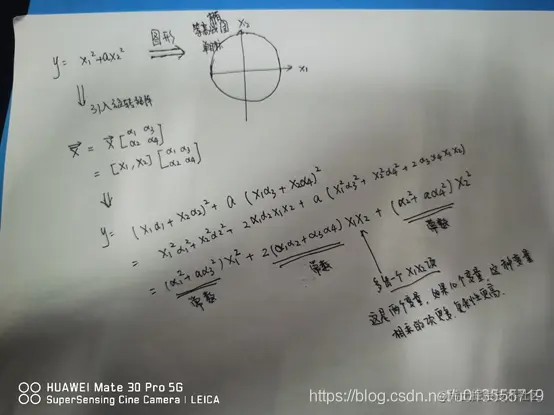 y = x₁² + ax₂²
图形
等高线图
x₂
x₁
引入旋转矩阵
x⃗ = x⃗ [α₁ α₃
α₂ α₄]
= [x₁, x₂] [α₁ α₃
α₂ α₄]
y = (x₁α₁ + x₂α₂)² + a (x₁α₃ + x₂α₄)²
= x₁²α₁² + x₂²α₂² + 2α₁α₂x₁x₂ + a (x₁²α₃² + x₂²α₄² + 2α₃α₄x₁x₂)
= (α₁² + aα₃²) x₁² + 2(α₁α₂ + α₃α₄) x₁x₂ + (α₂² + aα₄²) x₂²
常数 常数 常数
多出一个 x₁x₂项
这是两个变量, 如果10个变量, 这种变量
相乘的项更多, 复杂性更高.
HUAWEI Mate 30 Pro 5G
SuperSensing Cine Camera | LEICA
https://blog.csdn.net/u013555719